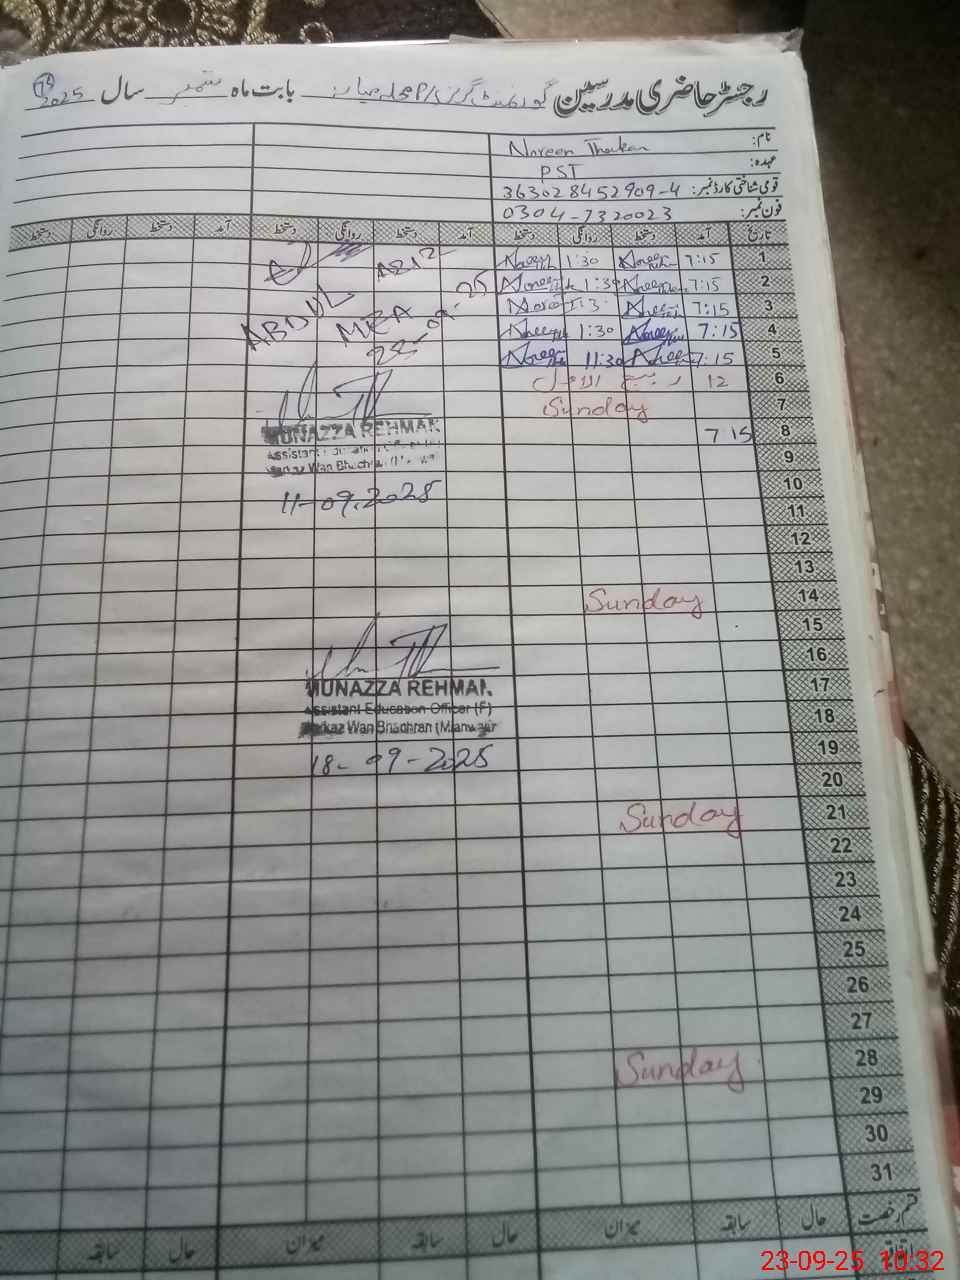 رجسٹر حاضری مدرسین گورنمنٹ گرلز P/S محلہ میاں بابت ماہ ستمبر سال 2025
نام: Noreen
عہدہ: PST
قومی شناختی کارڈ نمبر: 363028452909-4
فون نمبر: 0304-7320023
تاریخ آمد دستخط روانگی دستخط آمد دستخط روانگی دستخط آمد دستخط روانگی دستخط
1 7:15 1:30
2 7:15
3 7:15
4 7:15 1:30
5 7:15 11:30
6 12 ربیع الاول
7 Sunday
8 7 15
9
10
11
12
13
14 Sunday
15
16
17
18
19
20
21 Sunday
22
23
24
25
26
27
28 Sunday
29
30
31
قسم رخصت حال سابقہ میزان حال سابقہ میزان حال سابقہ
ABDUL AZIZ
MEA
MUNAZZA REHMAN
11-09.2025
MUNAZZA REHMAN
Assistant Education Officer (F)
Markaz Wan Bhachran (Mianwali)
18-09-2025
23-09-25 10:32